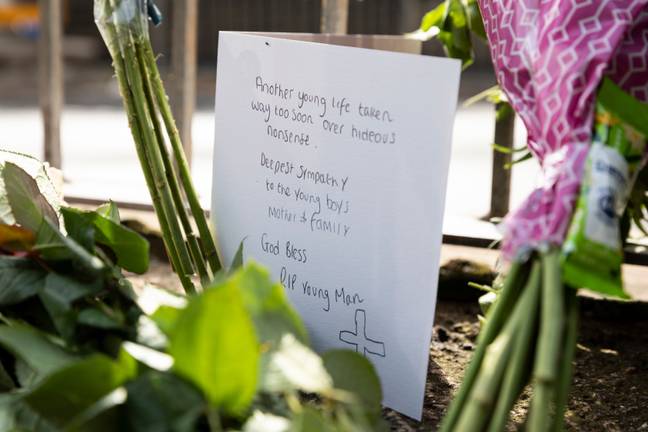 Another young life taken
way too soon over hideous
nonsense.
Deepest Sympathy
to the young boys
Mother & family
God Bless
R.I.P Young Man